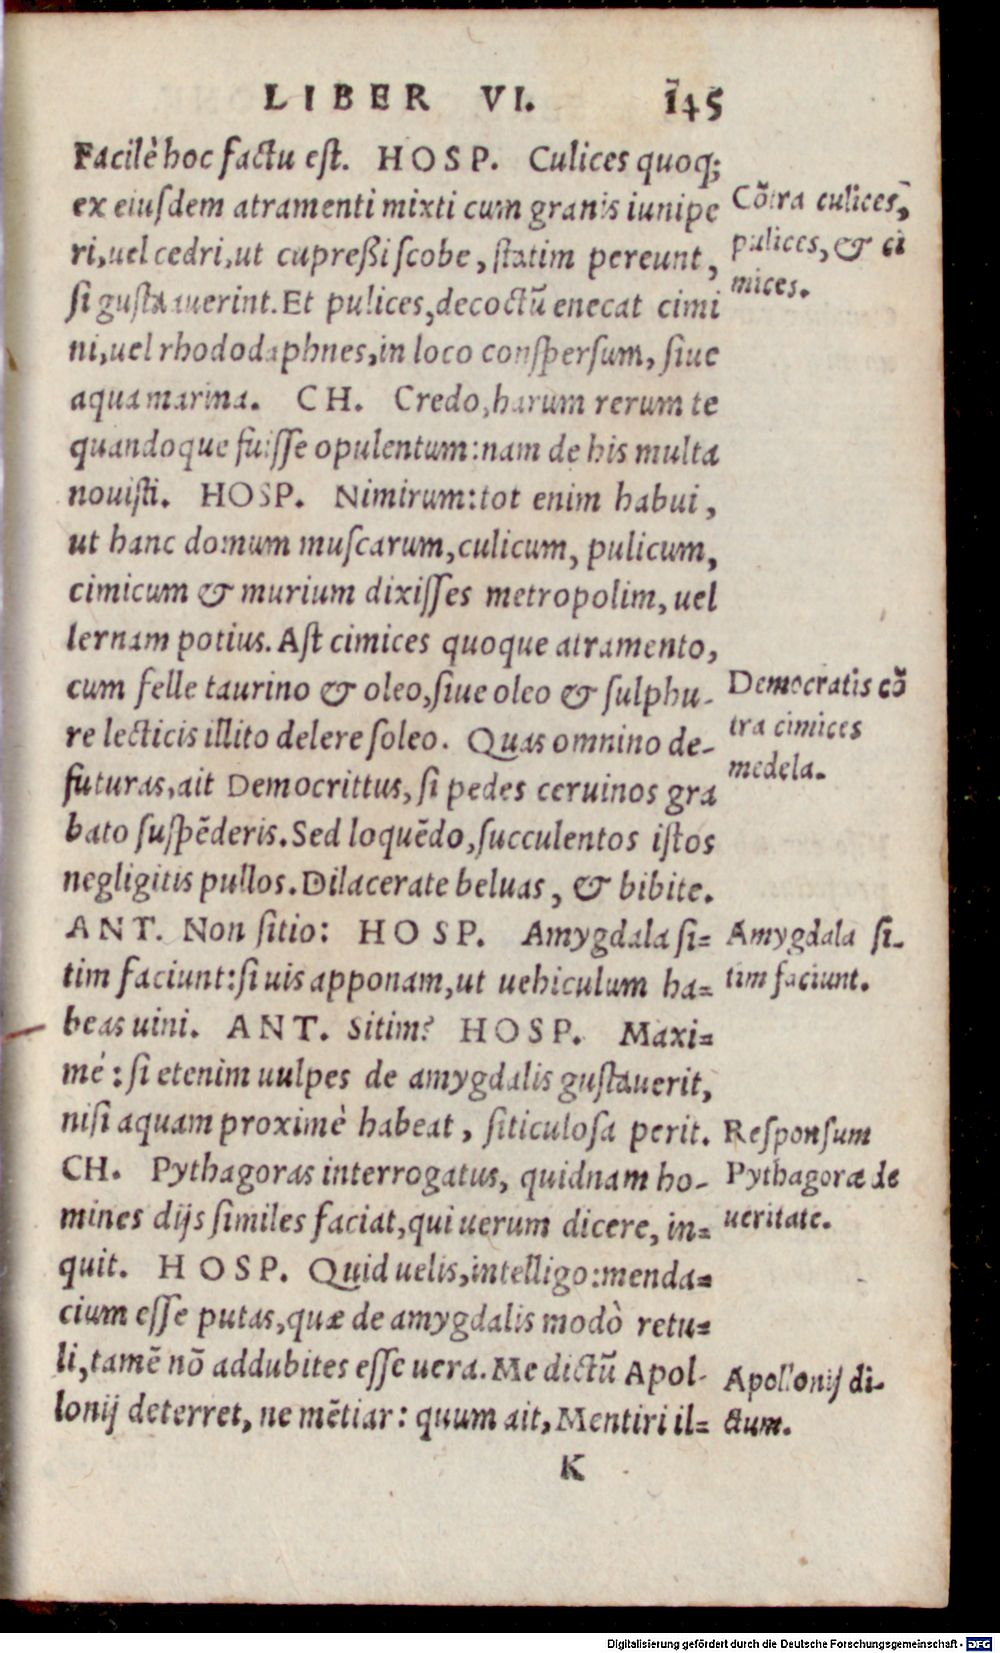 LIBER VI. 145
Facilè hoc factu est. HOSP. Culices quoq;
ex eiusdem atramenti mixti cum granis iunipe
ri, uel cedri, ut cupreßi scobe, statim pereunt,
si gustauerint. Et pulices, decoctũ enecat cimi
ni, uel rhododaphnes, in loco conspersum, siue
aqua marina. CH. Credo, harum rerum te
quandoque fuisse opulentum: nam de his multa
nouisti. HOSP. Nimirum: tot enim habui,
ut hanc domum muscarum, culicum, pulicum,
cimicum & murium dixisses metropolim, uel
lernam potius. Ast cimices quoque atramento,
cum felle taurino & oleo, siue oleo & sulphu-
re lecticis illito delere soleo. Quas omnino de-
futuras, ait Democrittus, si pedes ceruinos gra
bato suspẽderis. Sed loquẽdo, succulentos istos
negligitis pullos. Dilacerate beluas, & bibite.
ANT. Non sitio: HOSP. Amygdala si=
tim faciunt: si uis apponam, ut uehiculum ha=
beas uini. ANT. Sitim? HOSP. Maxi=
mé: si etenim uulpes de amygdalis gustauerit,
nisi aquam proximè habeat, siticulosa perit.
CH. Pythagoras interrogatus, quidnam ho-
mines dijs similes faciat, qui uerum dicere, in=
quit. HOSP. Quid uelis, intelligo: menda=
cium esse putas, quæ de amygdalis modò retu=
li, tamẽ nõ addubites esse uera. Me dictũ Apol-
lonij deterret, ne mẽtiar: quum ait, Mentiri il=
K
Cõtra culices,
pulices, & ci
mices.
Democratis cõ
tra cimices
medela.
Amygdala si-
tim faciunt.
Responsum
Pythagoræ de
ueritate.
Apollonij di-
ctum.
Digitalisierung gefördert durch die Deutsche Forschungsgemeinschaft - DFG